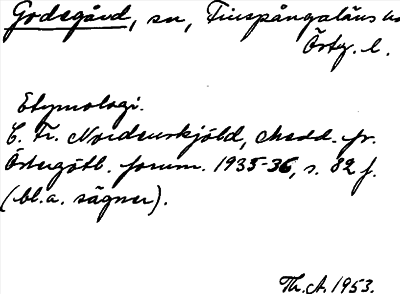 Godegård, sn, Finspångaläns hd
Östg. l.
Etymologi.
C. Fr. Nordenskjöld, Medd. fr.
Östergötl. fornm. 1935-36, s. 82 f.
(bl.a. sägner).
Th. A. 1953.